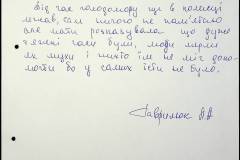 Від час голодомору що в колисці
лежав, сам нічого не пам'ятаю
але мати розказувала що дуже
тяжкі часи були, люди мерли
як мухи і ніхто їм не міг допо-
могти бо у самих їсти не було.
Гаврилюк А А